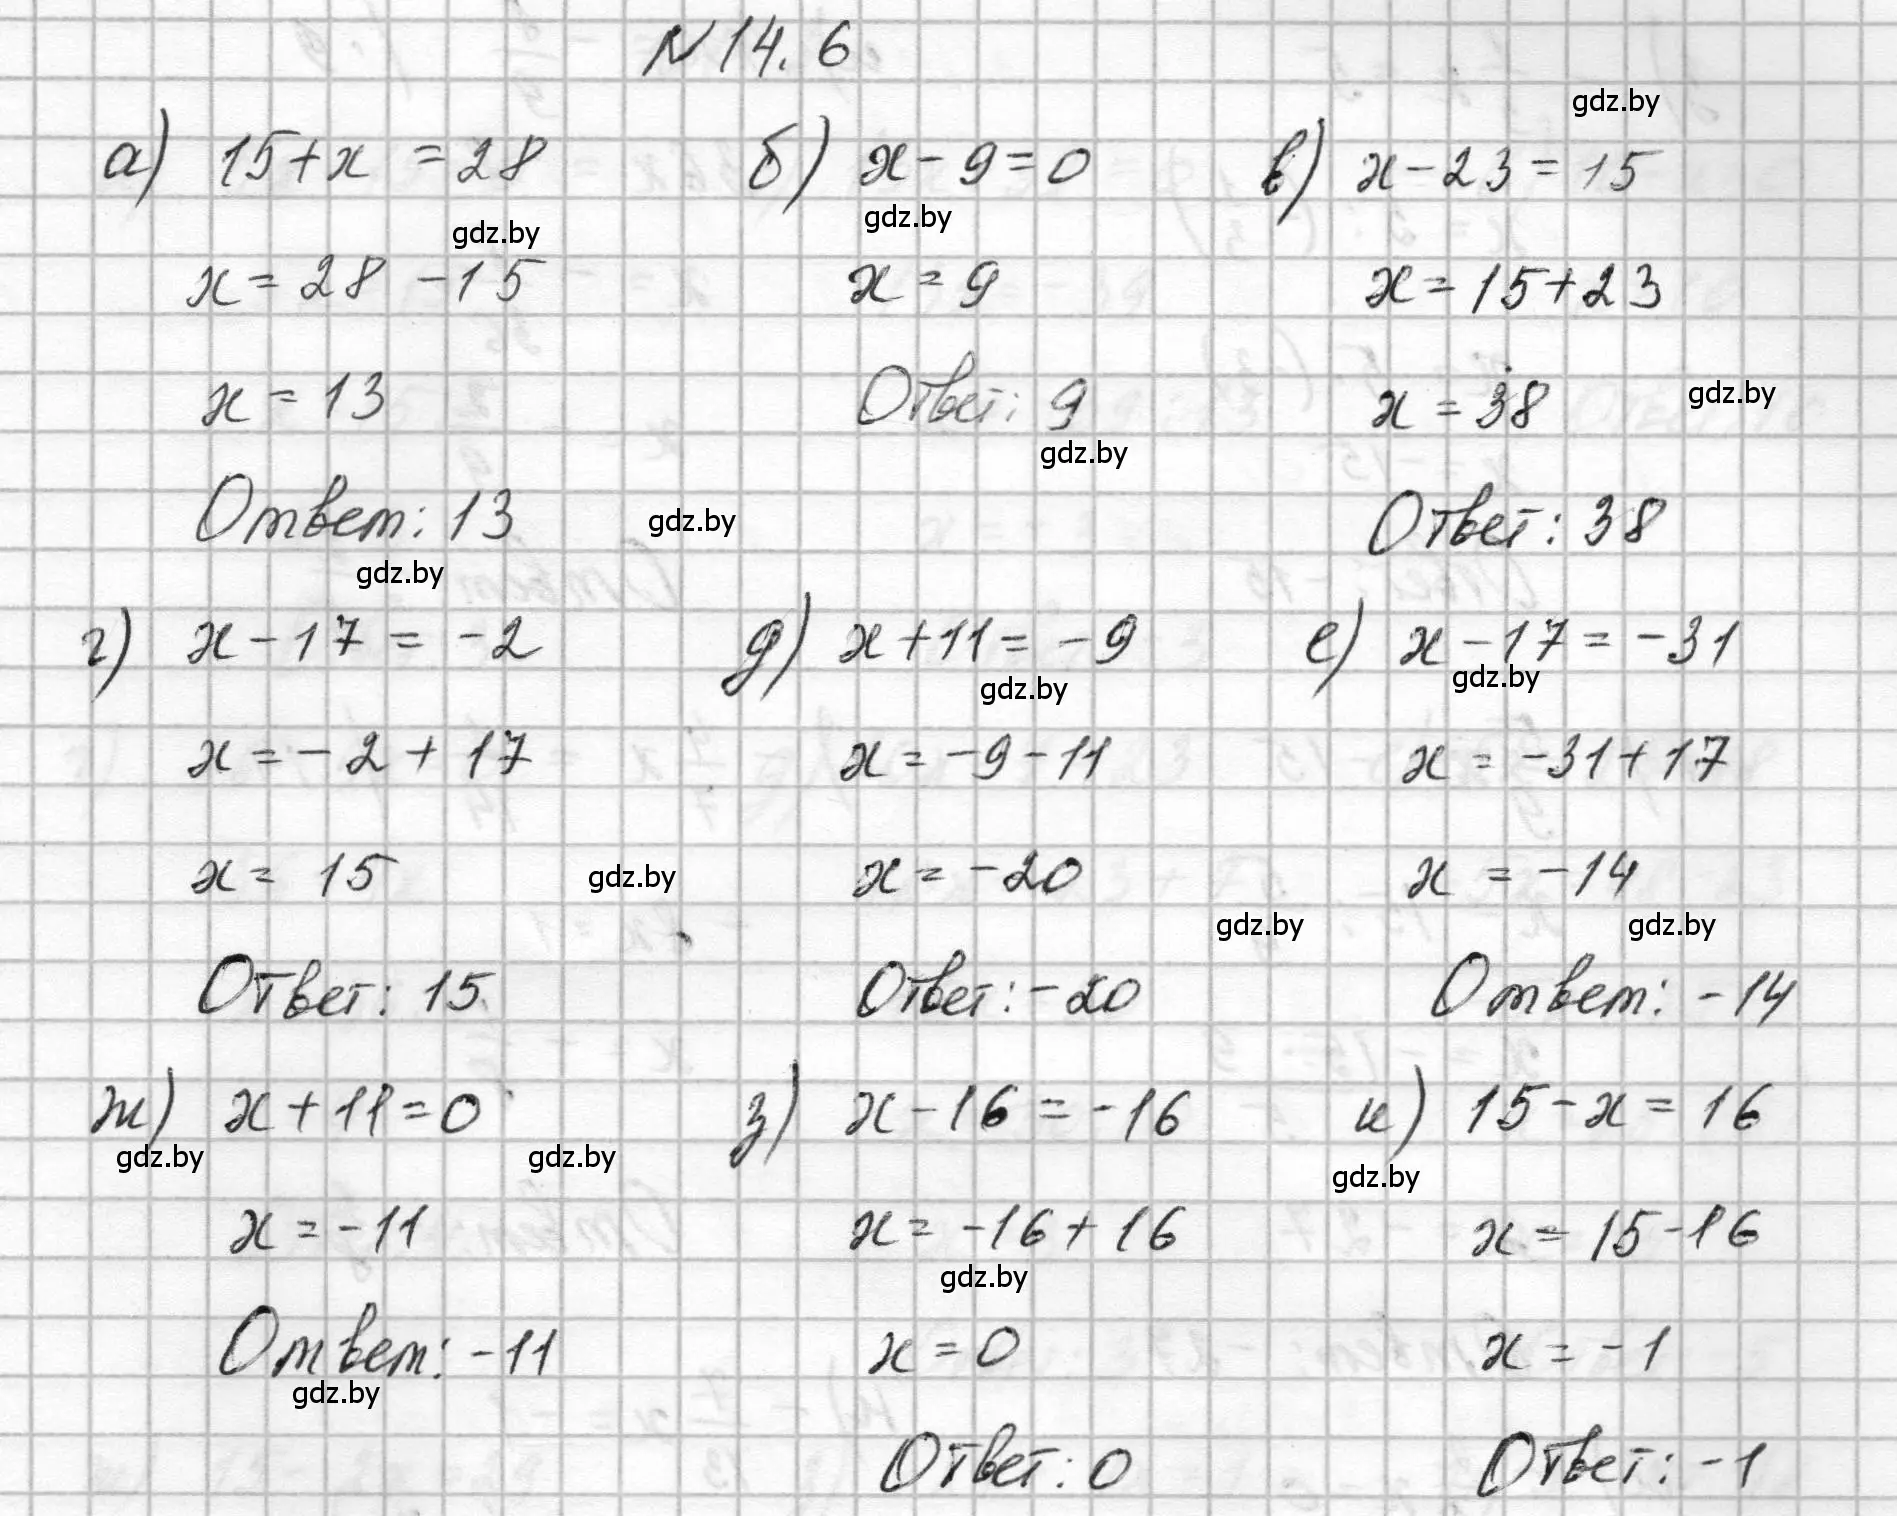 N 14.6
gdz.by
а) 15+x = 28
б) x - 9 = 0
в) x - 23 = 15
gdz.by
gdz.by
x = 28 - 15
x = 9
x = 15 + 23
x = 13
Ответ: 9
x = 38
gdz.by
gdz.by
Ответ: 13
gdz.by
Ответ: 38
gdz.by
г) x - 17 = -2
д) x + 11 = -9
е) x - 17 = -31
gdz.by
gdz.by
x = -2 + 17
x = -9 - 11
x = -31 + 17
x = 15
gdz.by
x = -20
x = -14
gdz.by
gdz.by
Ответ: 15
Ответ: -20
Ответ: -14
ж) x + 11 = 0
з) x - 16 = -16
и) 15 - x = 16
gdz.by
gdz.by
gdz.by
x = -11
x = -16 + 16
x = 15 - 16
gdz.by
Ответ: -11
x = 0
x = -1
gdz.by
Ответ: 0
Ответ: -1